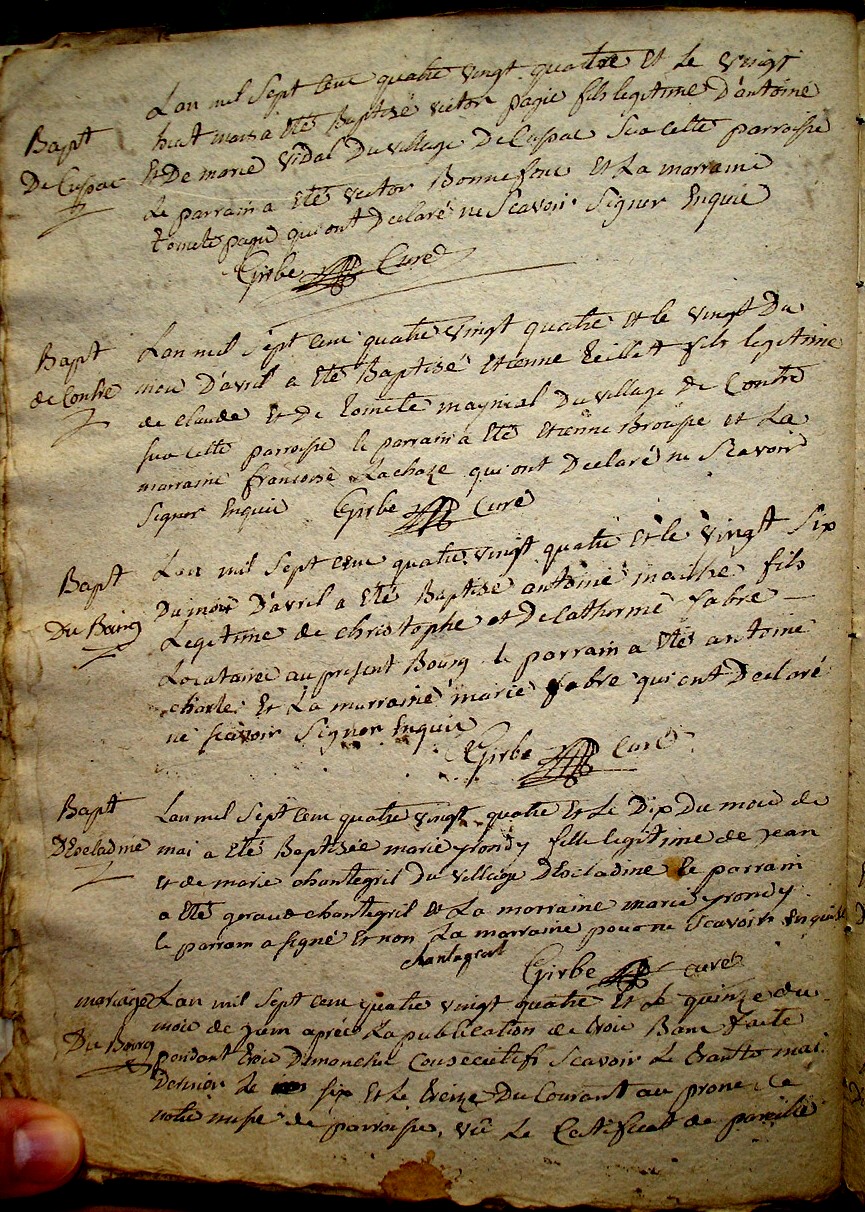 Bapt
De Cussac
Lan mil Sept cent quatre vingt quatre et Le vingt
huit mars a Eté Baptisé victor pagie fils legitime D'antoine
Et De marie vidal Du village De Cussac Sur cette parroisse
Le parrain a Eté victor Bonnefoue et La marraine
pagie qui ont Declaré ne Scavoir Signer Enquis
Girbe Curé
Bapt
de Contre
Lan mil Sept cent quatre vingt quatre et le vingt Du
mois D'avril a Eté Baptisé Etienne teillet fils legitime
de claude Et De tomete maynial Du village de Contre
sur cette parroisse le parrain a Eté etienne Broupe et La
marraine francoise Lachaze qui ont Declaré ne Scavoir
Signer Enquis Girbe Curé
Bapt
Du Bourg
Lan mil Sept cent quatre vingt quatre et le vingtt Six
Du mois D'avril a Eté Baptisé antoine fils
Legitime de christophe et De Catherine fabre
Locataires au present Bourg le parrain a Eté antoine
charles Et La marraine marie fabre qui ont Declaré
ne scavoir Signer Enquis
Girbe Curé
Bapt
D'Escladine
Lan mil Sept cent quatre vingt quatre Et Le Dix Du mois de
mai a Eté Baptisée marie yrondy fille legitime de jean
et de marie chantegril Du village D'Escladine Le parrain
a Eté geraud chantegril et La marraine marie yrondy
le parrain a signé Et non La marraine pour ne Scavoir Enquise
chantegrel
Girbe curé
mariage
Du Bourg
Lan mil Sept cent quatre vingt quatre Et Le quinze du
mois de juin aprés La publication de trois Banc faite
pendant trois Dimanches Consecutifs Scavoir Le trantte mai
Dernier Le six Et Le treize Du Courant au prone de
notre messe de parroisse, vû Le Certificat de pareille